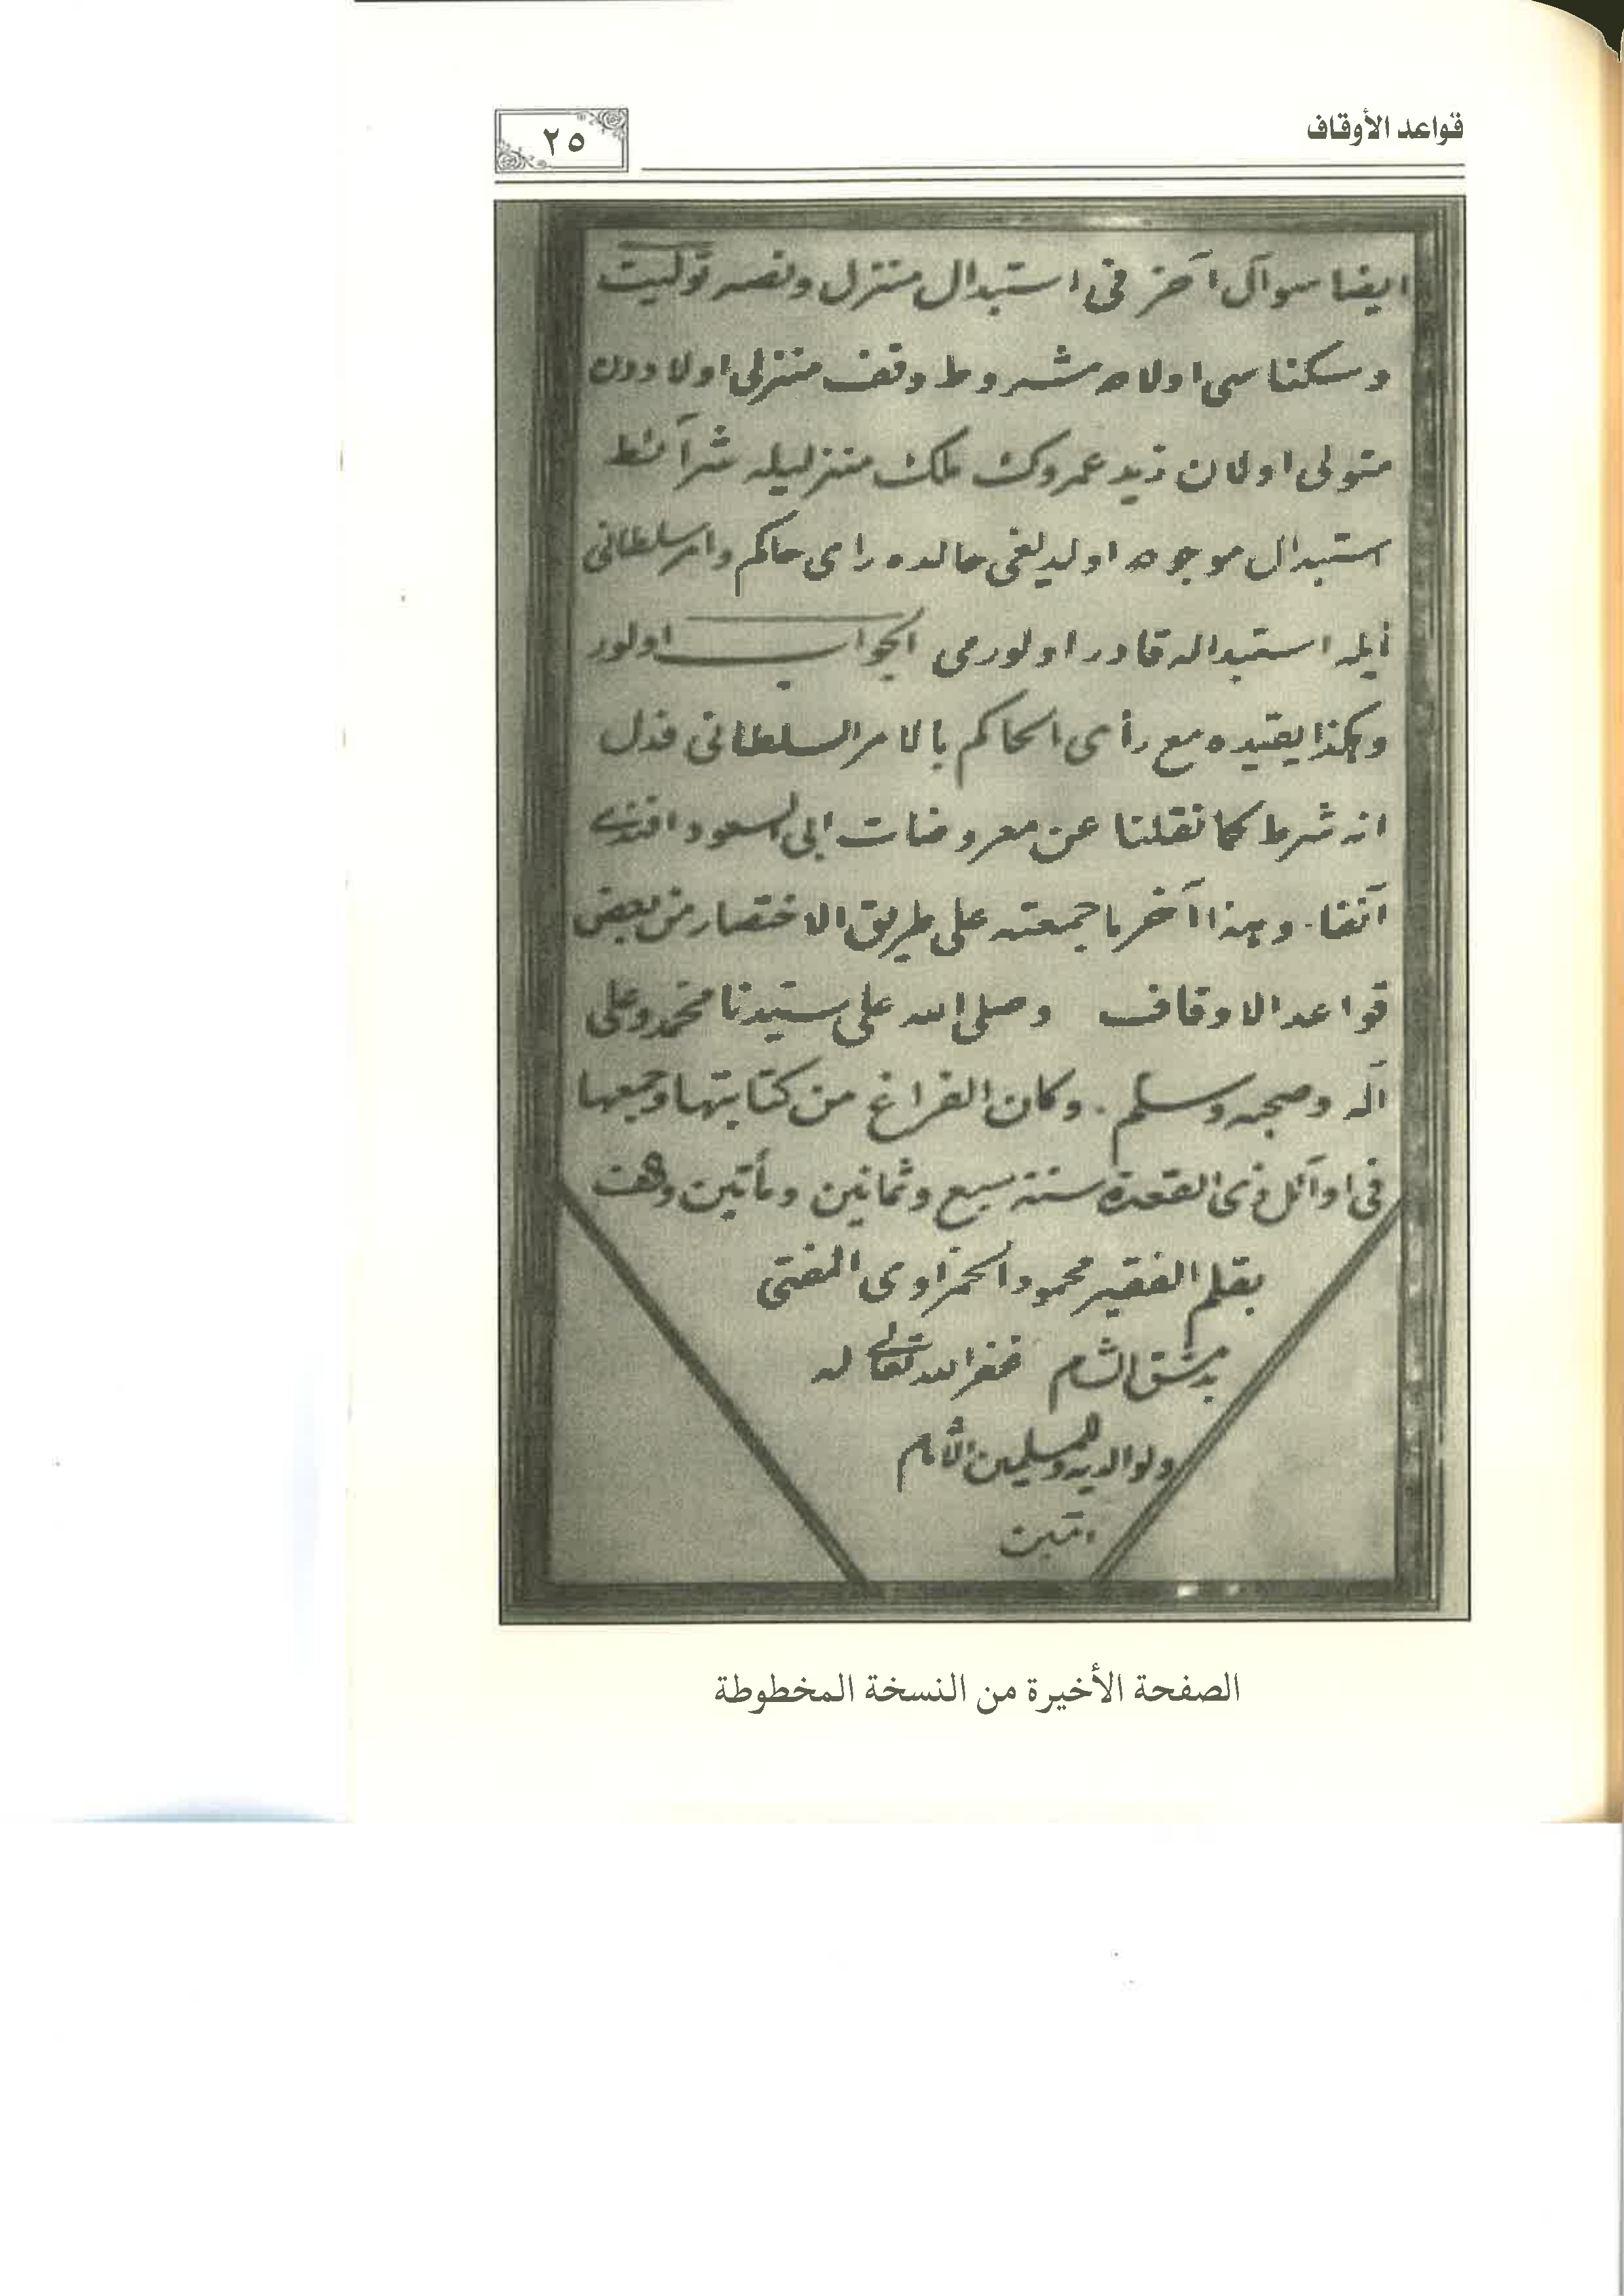 قواعد الأوقاف
٢٥
ايضا سوآل آخر فى استبدال منزل ونصه توليت
وسكناسى اولاده مشروط وقف منزلى اولاددن
متولى اولان زيد عمروك ملك منزليله شرآئط
استبدال موجوده اولديغى حالده راى حاكم وامر سلطانى
ايله استبداله قادر اولورمى الجواب اولور
وهكذا يقيده مع رأى الحاكم بالامر السلطانى فدل
انه شرط كما نقلنا عن معروضات ابى السعود افندى
آنفا. وهذا آخر ما جمعته على طريق الاختصار من بعض
قواعد الاوقاف وصلى الله على سيدنا محمد وعلى
آله وصحبه وسلم. وكان الفراغ من كتابتها وجمعها
فى اوآئل ذى القعدة سنة سبع وثمانين ومأتين والف
بقلم الفقير محمود الحمزاوى المفتى
بدمشق الشام غفر الله تعالى له
ولوالديه وللمسلمين
الصفحة الأخيرة من النسخة المخطوطة